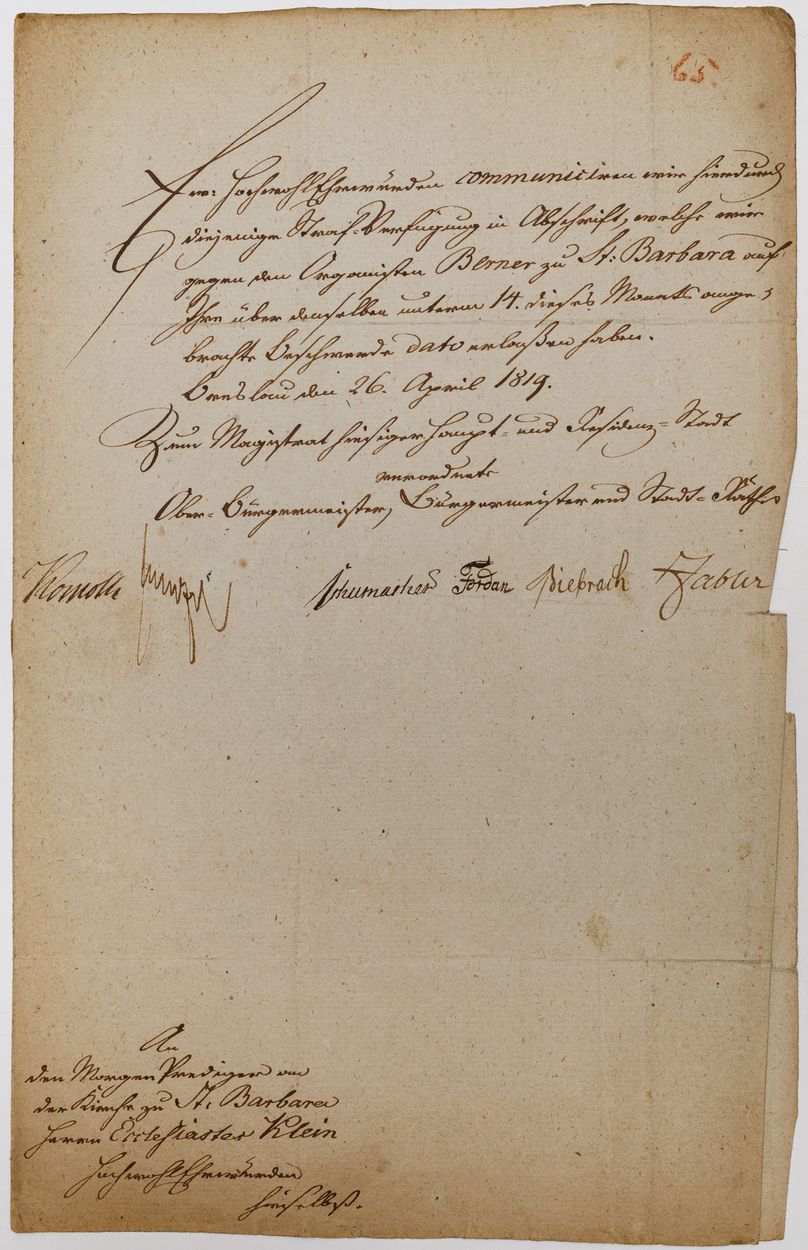 65.
Ew: HochwohlEhrwürden communiciren wir hierdurch
diejenige Straf-Verfügung in Abschrift, welche wir
gegen den Organisten Berner zu St: Barbara auf
Ihre über denselben unterm 14. dieses Monats ange-
brachte Beschwerde dato erlaßen haben.
Breslau den 26. April 1819.
Zum Magistrat hiesiger Haupt- und Residenz-Stadt
verordnete
Ober-Bürgermeister, Bürgermeister und Stadt-Räthe
Schumacher Jordan
An
den MorgenPrediger an
der Kirche zu St: Barbara
Herrn Ecclesiastes Klein
HochwohlEhrwürden
hieselbst.